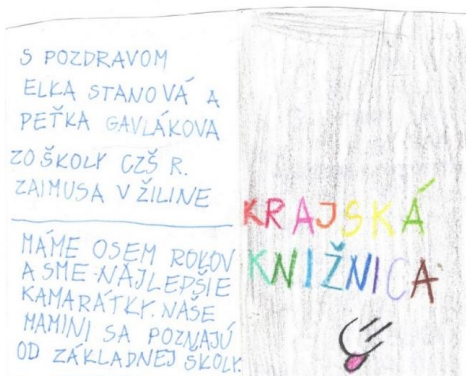 S POZDRAVOM
ELKA STANOVÁ A
PEŤKA GAVLÁKOVA
ZO ŠKOLY CZŠ R.
ZAIMUSA V ŽILINE
MÁME OSEM ROKOV
A SME NAJLEPŠIE
KAMARÁTKY. NAŠE
MAMINI SA POZNAJÚ
OD ZÁKLADNEJ ŠKOLY.
KRAJSKÁ
KNIŽNICA